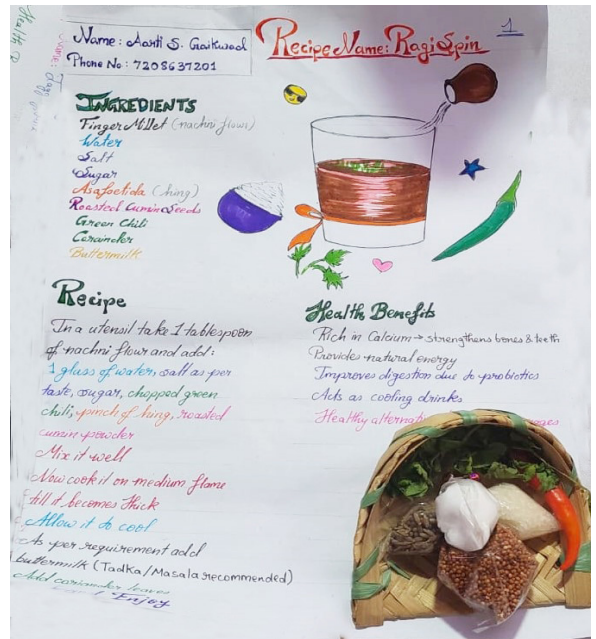 Health
Name: Aarti S. Gaikwad
Phone No: 7208637201
Recipe Name: Ragi Spin
1
INGREDIENTS
Finger Millet (nachni flour)
Water
Salt
Sugar
Asafoetida (hing)
Roasted Cumin Seeds
Green Chili
Corainder
Buttermilk
Recipe
In a utensil take 1 tablespoon
of nachni flour and add:
1 glass of water, salt as per
taste, sugar, chopped green
chili, pinch of hing, roasted
cumin powder
Mix it well
Now cook it on medium flame
till it becomes thick
Allow it to cool
As per requirement add
buttermilk (Tadka/Masala recommended)
Add coriander leaves
Enjoy
Health Benefits
Rich in Calcium → strengthens bones & teeth
Provides natural energy
Improves digestion due to probiotics
Acts as cooling drinks
Healthy